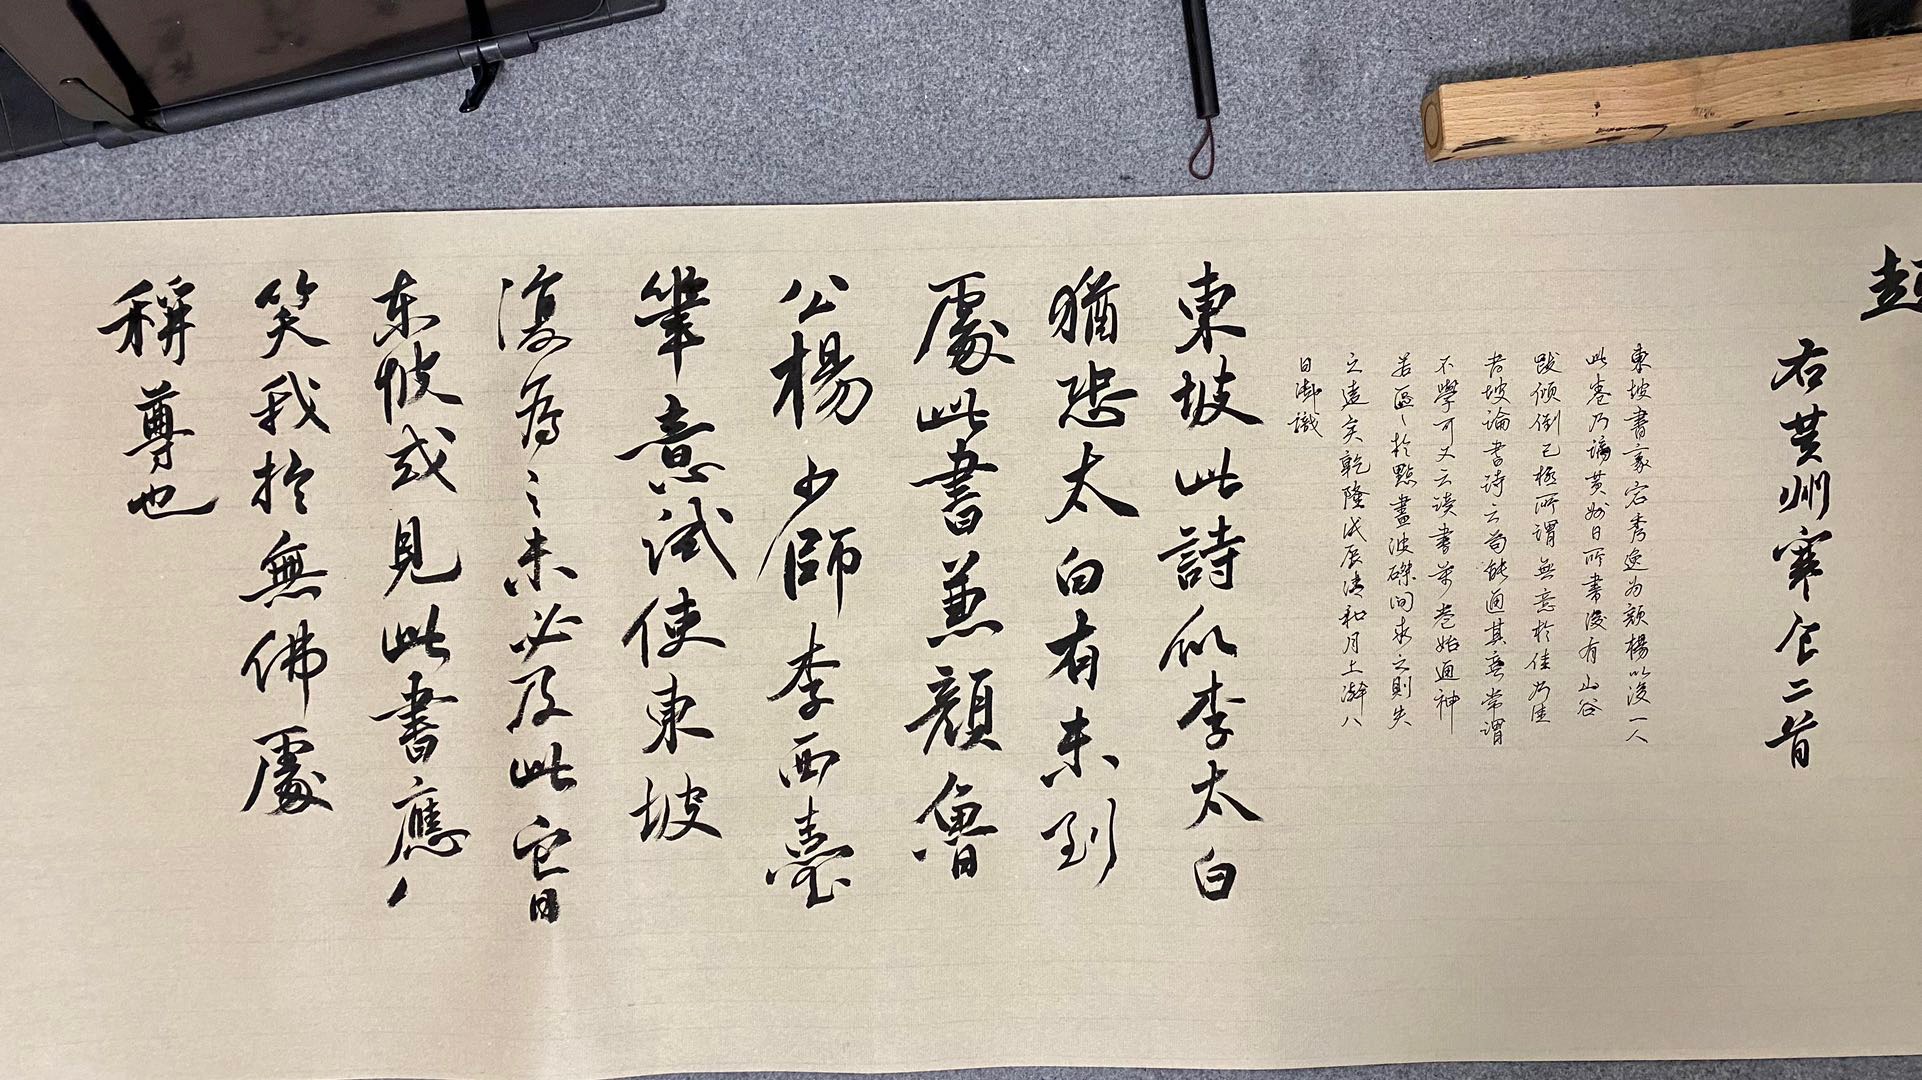 起
右黄州寒食二首
東坡書豪宕秀逸为顏楊以後一人
此卷乃謫黄州日所書後有山谷
跋傾倒已極所謂無意於佳乃佳
者坡論書詩云苟能通其意常謂
不學可又云读書萬卷始通神
若區〻於點畫波磔间求之則失
之遠矣乾隆戊辰清和月上澣八
日御識
東坡此詩似李太白
猶恐太白有未到
處此書兼顏魯
公楊少師李西臺
筆意試使東坡
復為之未必及此它日
东坡或見此書應〻
笑我於無佛處
稱尊也